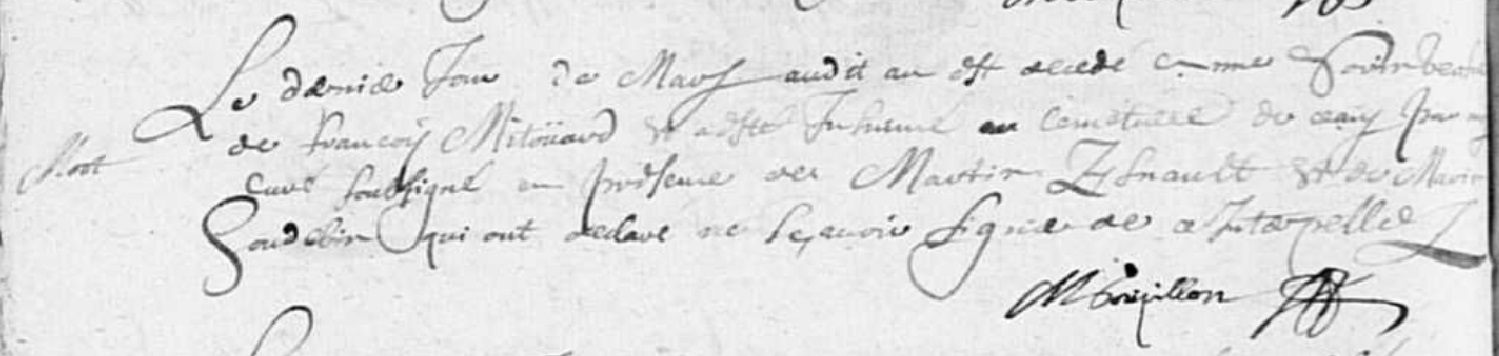 Le dernier Jour de Mars audit an est decedé
de francois Mitoüard et a esté Inhumé au Cemetiere de ceans par
Mort
curé soussigné en presence de Martin Esnault et de Marin
qui ont declaré ne scavoir signer de ce Interpellés